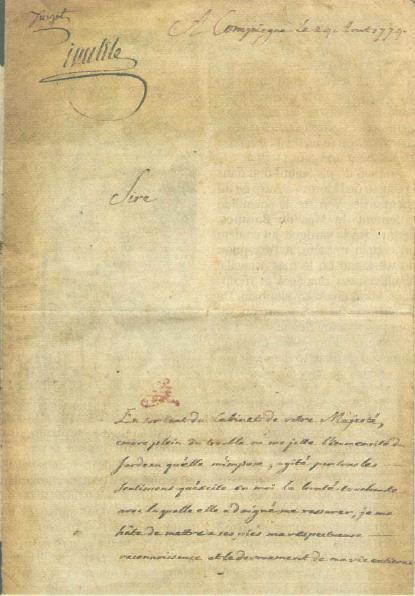 Turgot
inutile
A Compiegne le 24 Aout 1774.
Sire
En sortant du Cabinet de votre Majesté,
encore plein du trouble ou me jette l'immensité du
fardeau qu'elle m'impose, agité par tous les
sentimens qu'excite en moi la bonté touchante
avec laquelle elle a daigné me rassurer, je me
hâte de mettre a ses piés ma respectueuse
reconnoissance et le devouement de ma vie entiere